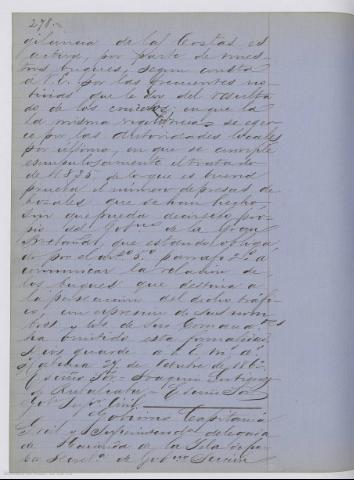 278.
gilancia de las Costas es
activa, por parte de nues-
tros buques, segun consta
a V.E. por las frecuentes no-
ticias que le doy del resulta-
do de los cruceros; en que la
la misma vigilancia se ejer-
ce por las autoridades locales
por último, en que se cumple
escrupulosamente el tratado
de 1835, de lo que es buena
prueba el número de presas de
bozales que se han hecho,
sin que pueda decirse lo pro-
pio del Gobno de la Gran
Bretaña, que estando obliga-
do por el artº 5º parrafo 2º a
comunicar la relacion de
los buques que destina a
la persecucion del dicho tráfi-
co, con espresion de sus nom-
bres y los de sus Comandtes
ha omitido esta formalidad
Dios guarde a V.E. ms as
Habana 27 de Octubre de 186
Exmo Sor Joaquin Gutierrez
de Rubalcaba - Exmo Sor
Gobr Supr Civil
Gobierno Capitania
Gral y Superintendca delegada
de Hacienda de la Isla de Cu-
ba Secreta de Gobno Seccion